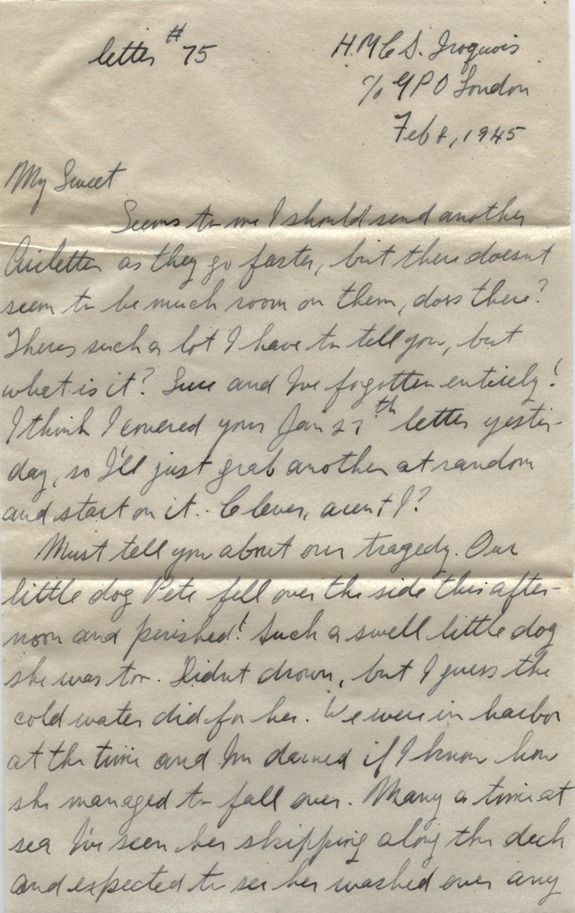 letter #75
H.M.C.S. Iroquois
c/o GPO London
Feb 8, 1945
My Sweet
Seems to me I should send another
Airletter as they go faster, but there doesnt
seem to be much room on them, does there?
Theres such a lot I have to tell you, but
what is it? Sure and Ive forgotten entirely!
I think I covered your Jan 27th letter yester-
day, so I'll just grab another at random
and start on it. Clever, arent I?
Must tell you about our tragedy. Our
little dog Pete fell over the side this after-
noon and perished! Such a swell little dog
she was too. Didnt drown, but I guess the
cold water did for her. We were in harbor
at the time and Im darned if I know how
she managed to fall over. Many a time at
sea I've seen her skipping along the deck
and expected to see her washed over any